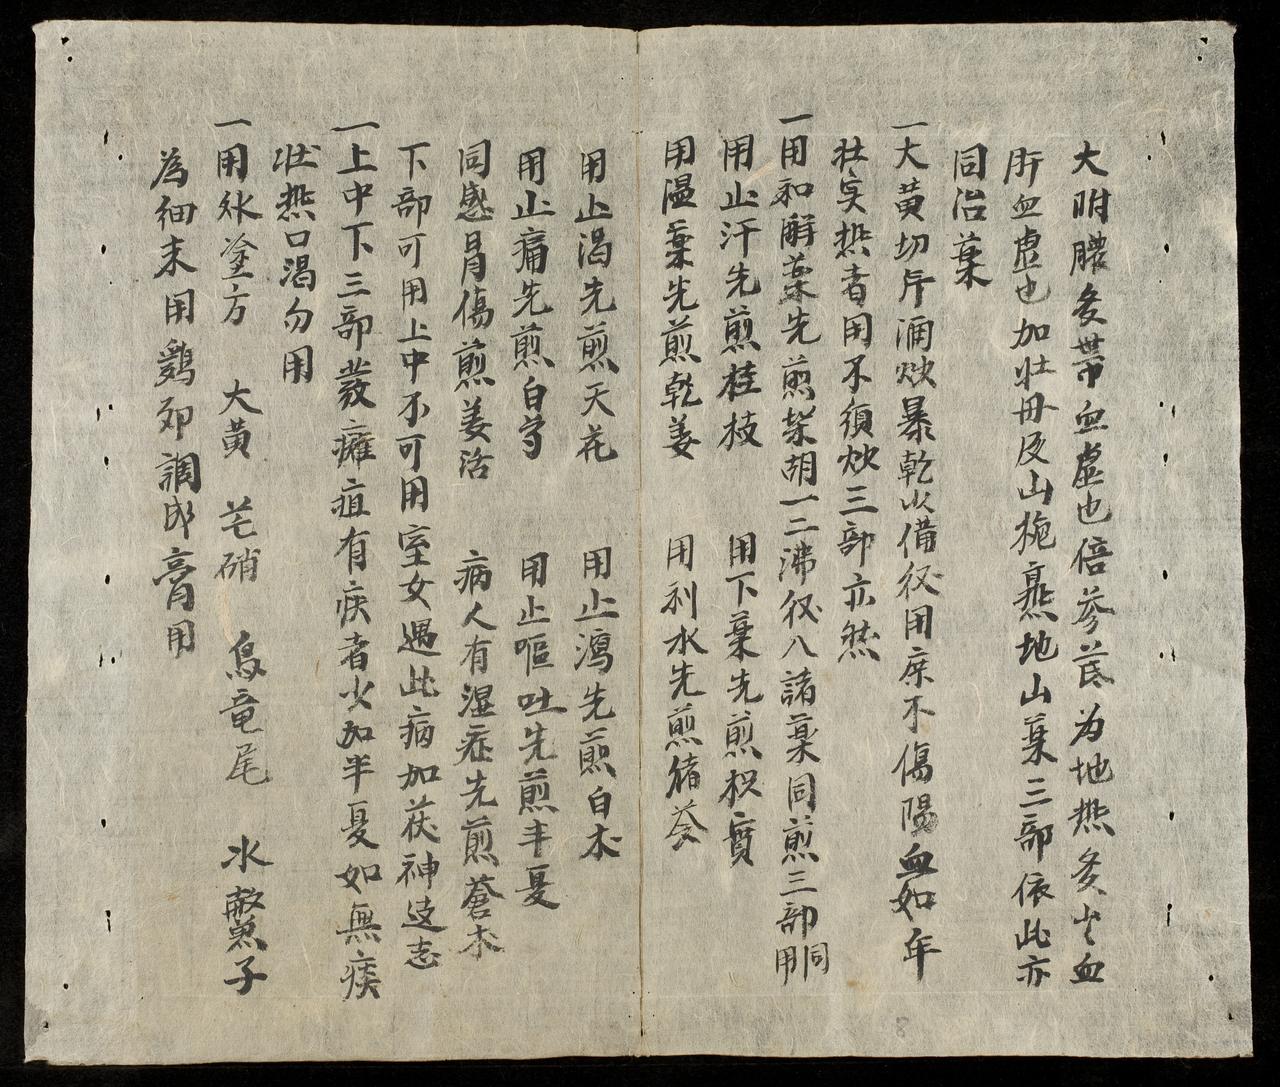 大附膿多帶血虛也倍參芪为地热多出血
所血虛也加壮丹及山梔熏地山薬三部依此亦
同治薬
一大黄切片酒炒暴乾以备後用庶不傷陽血如年
壮実热者用不須炒三部亦然
一用和解薬先煎柴胡一二沸後入諸薬同煎三部同用
用止汗先煎桂枝 用下薬先煎枳實
用温薬先煎乾姜 用利水先煎猪苓
用止渴先煎天花 用止瀉先煎白术
用止痛先煎白芍 用止嘔吐先煎半夏
同感冒傷煎姜活 病人有湿症先煎蒼术
下部可用上中不可用室女遇此病加茯神远志
一上中下三部發癰疽有痰者火加半夏如無痰
壮热口渴勿用
一用冰塗方 大黄 芒硝 烏竜尾 水鱉子
為細末用鷄卵調成膏用